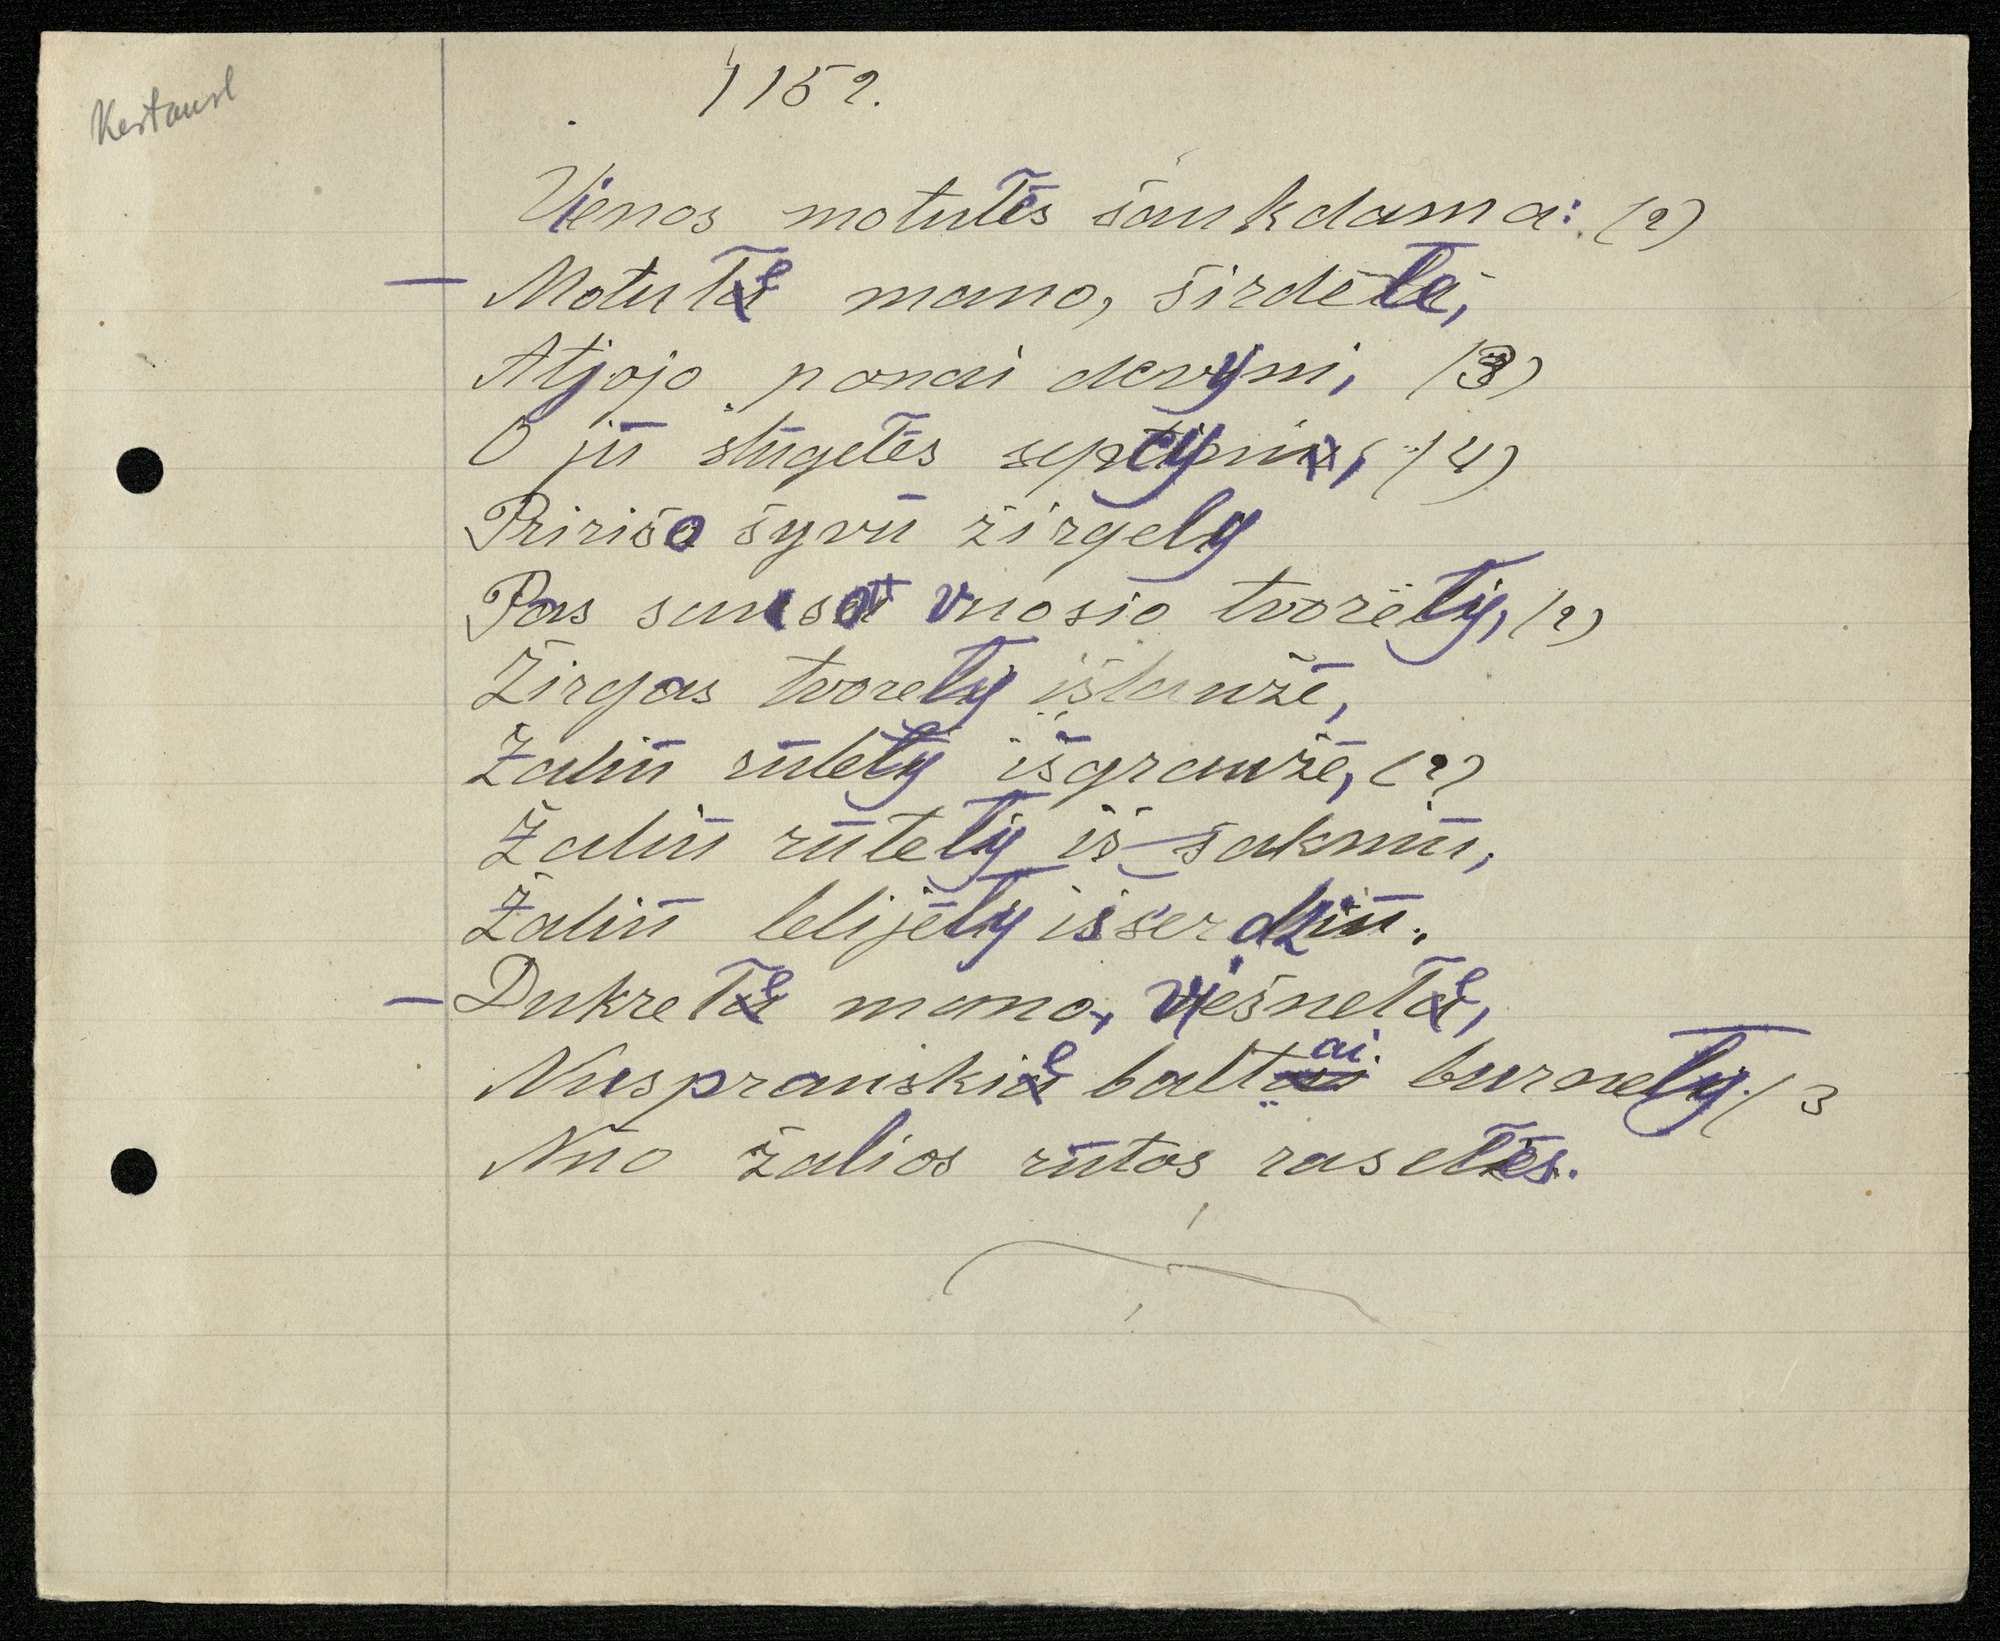 1152.
Vienos motutēs šaukdama: (2)
— Motutē mano, širdēlē,
Atjojo ponai devyni, (3)
O jū slūgelēs septyni, (4)
Pririšo šyvū žirgely
Pas vuosio tvorēly, (2)
Žirgas tvorely išlaužē,
Žaliū rūtely išgraužē, (2)
Žaliū rūtely iš šakniū,
Žaliū lelijēly iš šerdžiū.
— Dukrelē mano, viešnelē,
Nusprauskie baltai burnely. (3
Nūo žalios rūtos raselēs.